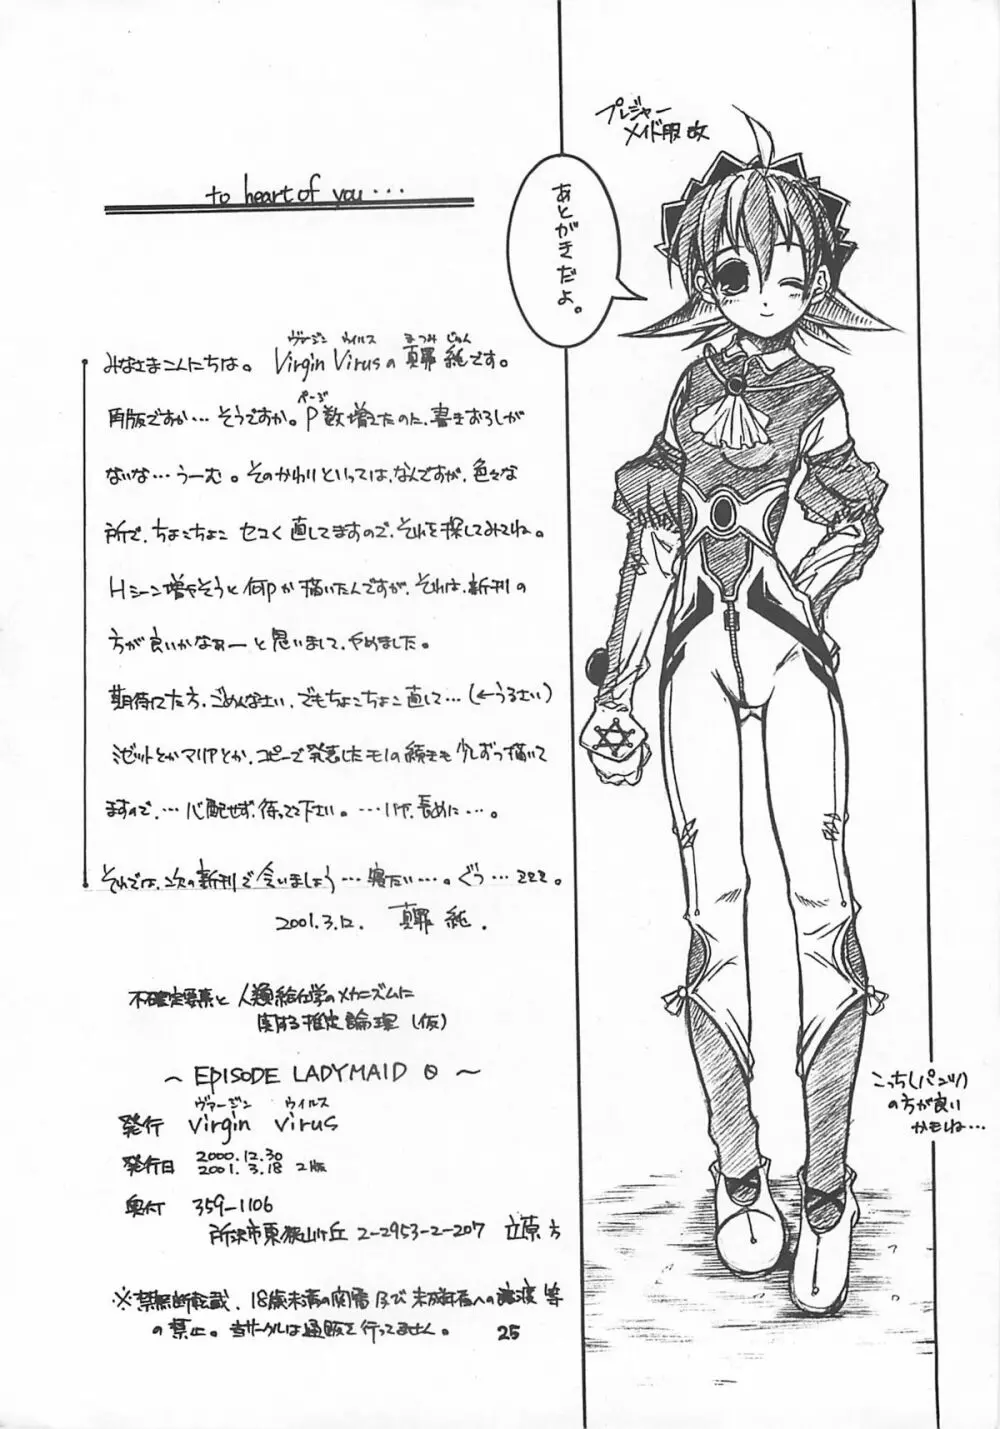 to heart of you...
プレジャー
メイド服改
あとがきだよ。
ヴァージン ウイルス まつみ じゅん
みなさまこんにちは。Virgin Virusの真罪 純です。
再版ですか…そうですか。P数増えたのに、書きおろしが
ページ
ないな…うーむ。そのかわりといっては、なんですが、色々な
所で、ちょこちょこ セコく 直してますので、それを探してみてね。
Hシーン増やそうと何Pか描いたんですが、それは、新刊の
方が良いかなぁーと思いまして、やめました。
期待してた方、ごめんなさい、でもちょこちょこ直して…(←うるさい)
ミゼットとかマリアとか、コピーで発表したモノの続きも少しずつ描いて
ますので、…心配せず、待ってて下さい。…いや、長めに…。
それでは、次の新刊で会いましょう…寝たい…。ぐぅ…zzz。
2001.3.12. 真罪 純.
不確定要素と人類給仕学のメカニズムに
関する推定論理(仮)
～ EPISODE LADYMAID 0 ～
ヴァージン ウイルス
発行 virgin virus
発行日 2000.12.30
2001.3.18 2版
奥付 359-1106
所沢市東狭山ヶ丘 2-2953-2-207 立原方
※禁無断転載、18歳未満の閲覧及び未成年者への譲渡等
の禁止。当サークルは通販を行ってません。
25
こっち(パンツ)
の方が良い
かもね…